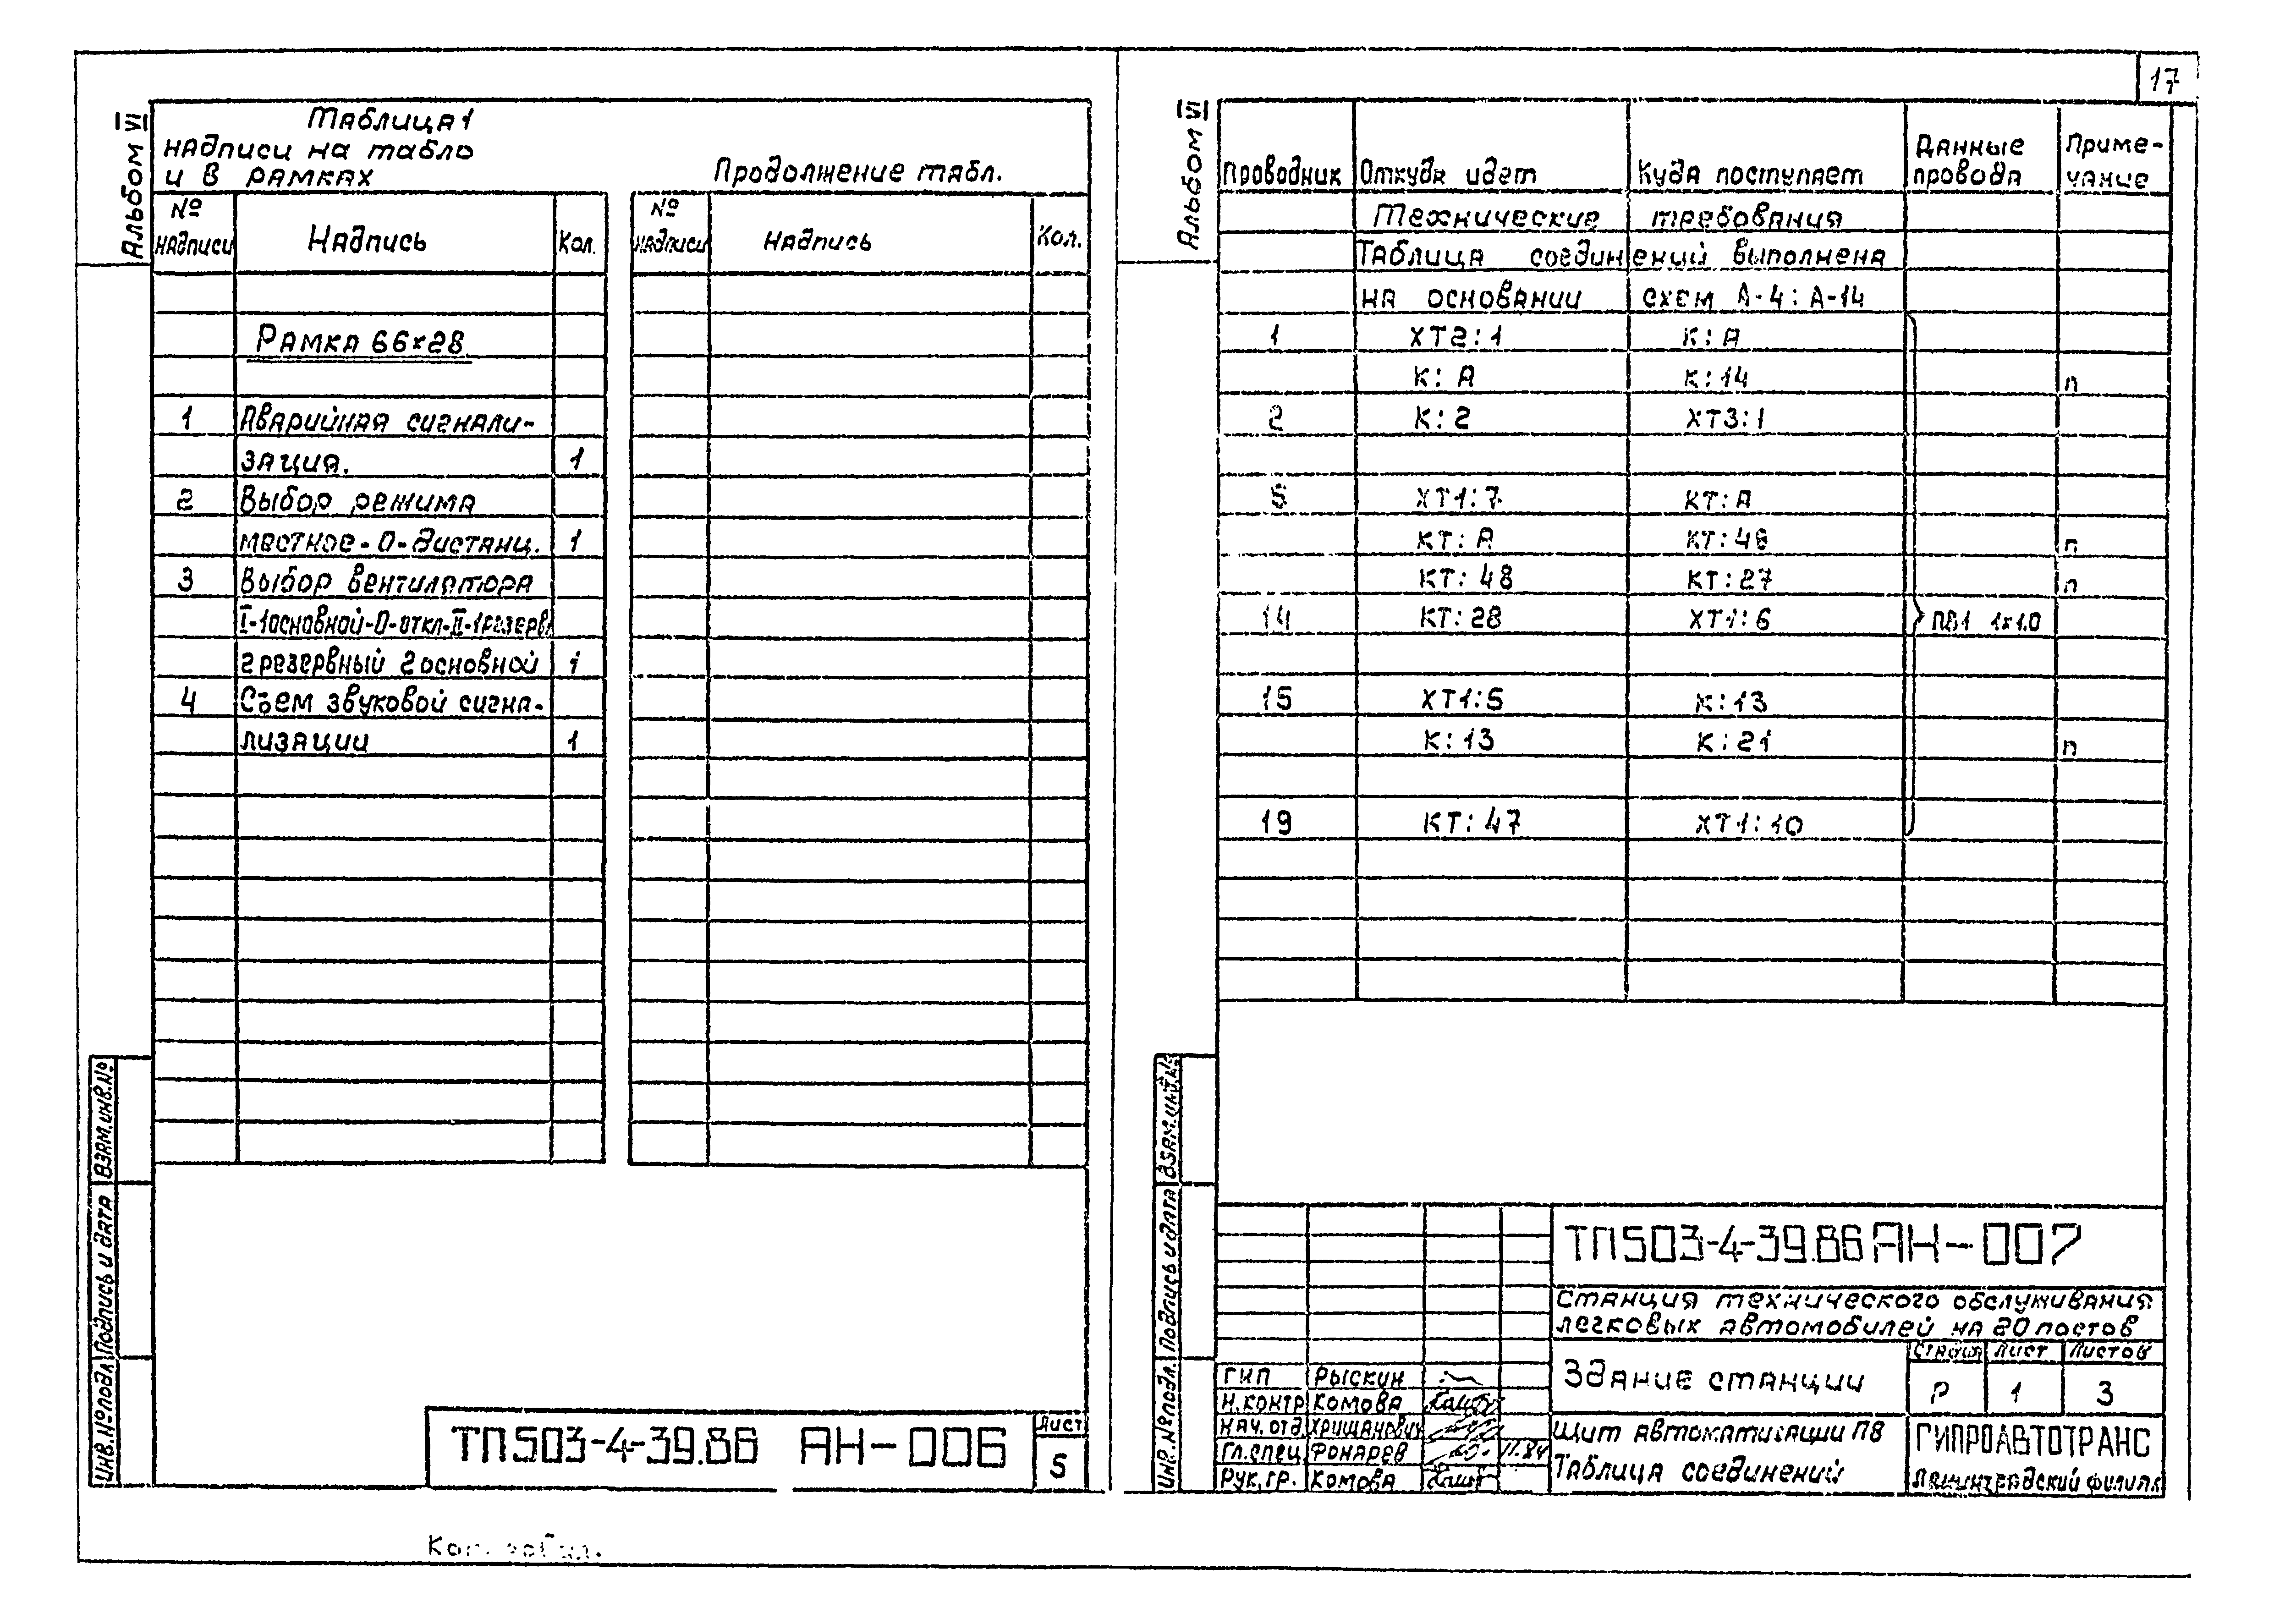 17
Альбом VI
Таблица 1
надписи на табло
и в рамках
Продолжение табл.
№ надписи Надпись Кол.
№ надписи Надпись Кол.
Рамка 66×28
1 Аварийная сигнали-
зация. 1
2 Выбор режима
местное-О-дистанц. 1
3 Выбор вентилятора
I-1основной-О-откл-II-1резервн
2 резервный 2 основной 1
4 Съем звуковой сигна-
лизации 1
Инв.№подл. Подпись и дата Взам.инв.№
ТП503-4-39.86 АН-006
Лист
5
Альбом VI
Проводник Откуда идет Куда поступает Данные провода Приме-чание
Технические требования
Таблица соединений выполнена
на основании схем А-4; А-14
1 ХТ2:1 К:А
К:А К:14 п
2 К:2 ХТ3:1
5 ХТ1:7 КТ:А
КТ:А КТ:48 п
КТ:48 КТ:27 п
14 КТ:28 ХТ1:6 ПВ1 1×1.0
15 ХТ1:5 К:13
К:13 К:21 п
19 КТ:47 ХТ1:10
Инв.№подл. Подпись и дата Взам.инв.№
ТП503-4-39.86 АН-007
Станция технического обслуживания
легковых автомобилей на 20 постов
Здание станции
Стадия Лист Листов
Р 1 3
ГИП Рыскин
Н.контр Комова
Нач.отд Хришанович
Гл.спец Фонарев 11.84
Рук.гр. Комова
Щит автоматизации П8
Таблица соединений
ГИПРОАВТОТРАНС
Ленинградский филиал